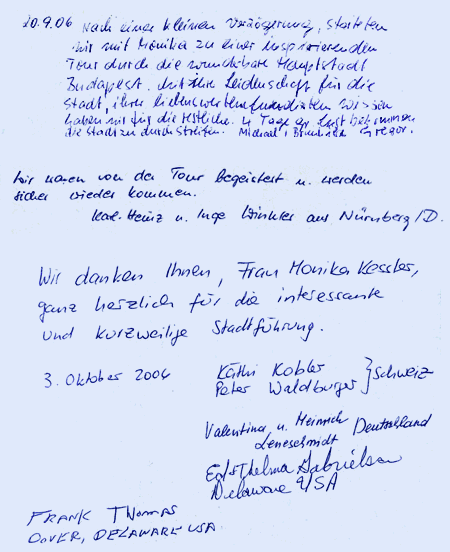 20.9.06 Nach einer kleinen Verzögerung, starteten
wir mit Monika zu einer inspirierenden
Tour durch die wunderbare Hauptstadt
Budapest. Mit ihr Leidenschaft für die
Stadt, ihrem wissen
haben wir für die restlichen 4 Tage Lust bekommen
die Stadt zu durchstreifen. Michael, Gregor.
Wir waren von der Tour begeistert u. werden
sicher wieder kommen.
Karl-Heinz u. Inge Winkler aus Nürnberg /D.
Wir danken Ihnen, Frau Monika Kessler,
ganz herzlich für die interessante
und kurzweilige Stadtführung.
3. Oktober 2006 Käthi Kobler
Peter Waldburger } Schweiz
Valentina u. Heinrich
Leneschmidt Deutschland
Ed & Thelma Gabrielson
Delaware USA
FRANK THOMAS
DOVER, DELAWARE USA